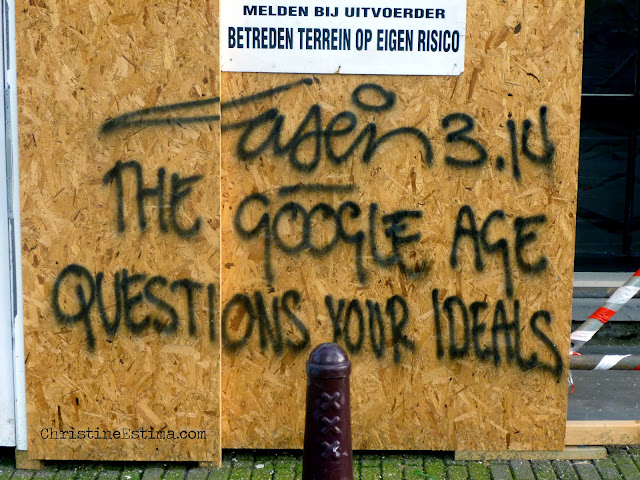 MELDEN BIJ UITVOERDER
BETREDEN TERREIN OP EIGEN RISICO
Tasein 3.14
THE GOOGLE AGE
QUESTIONS YOUR IDEALS
ChristineEstima.com
XXX